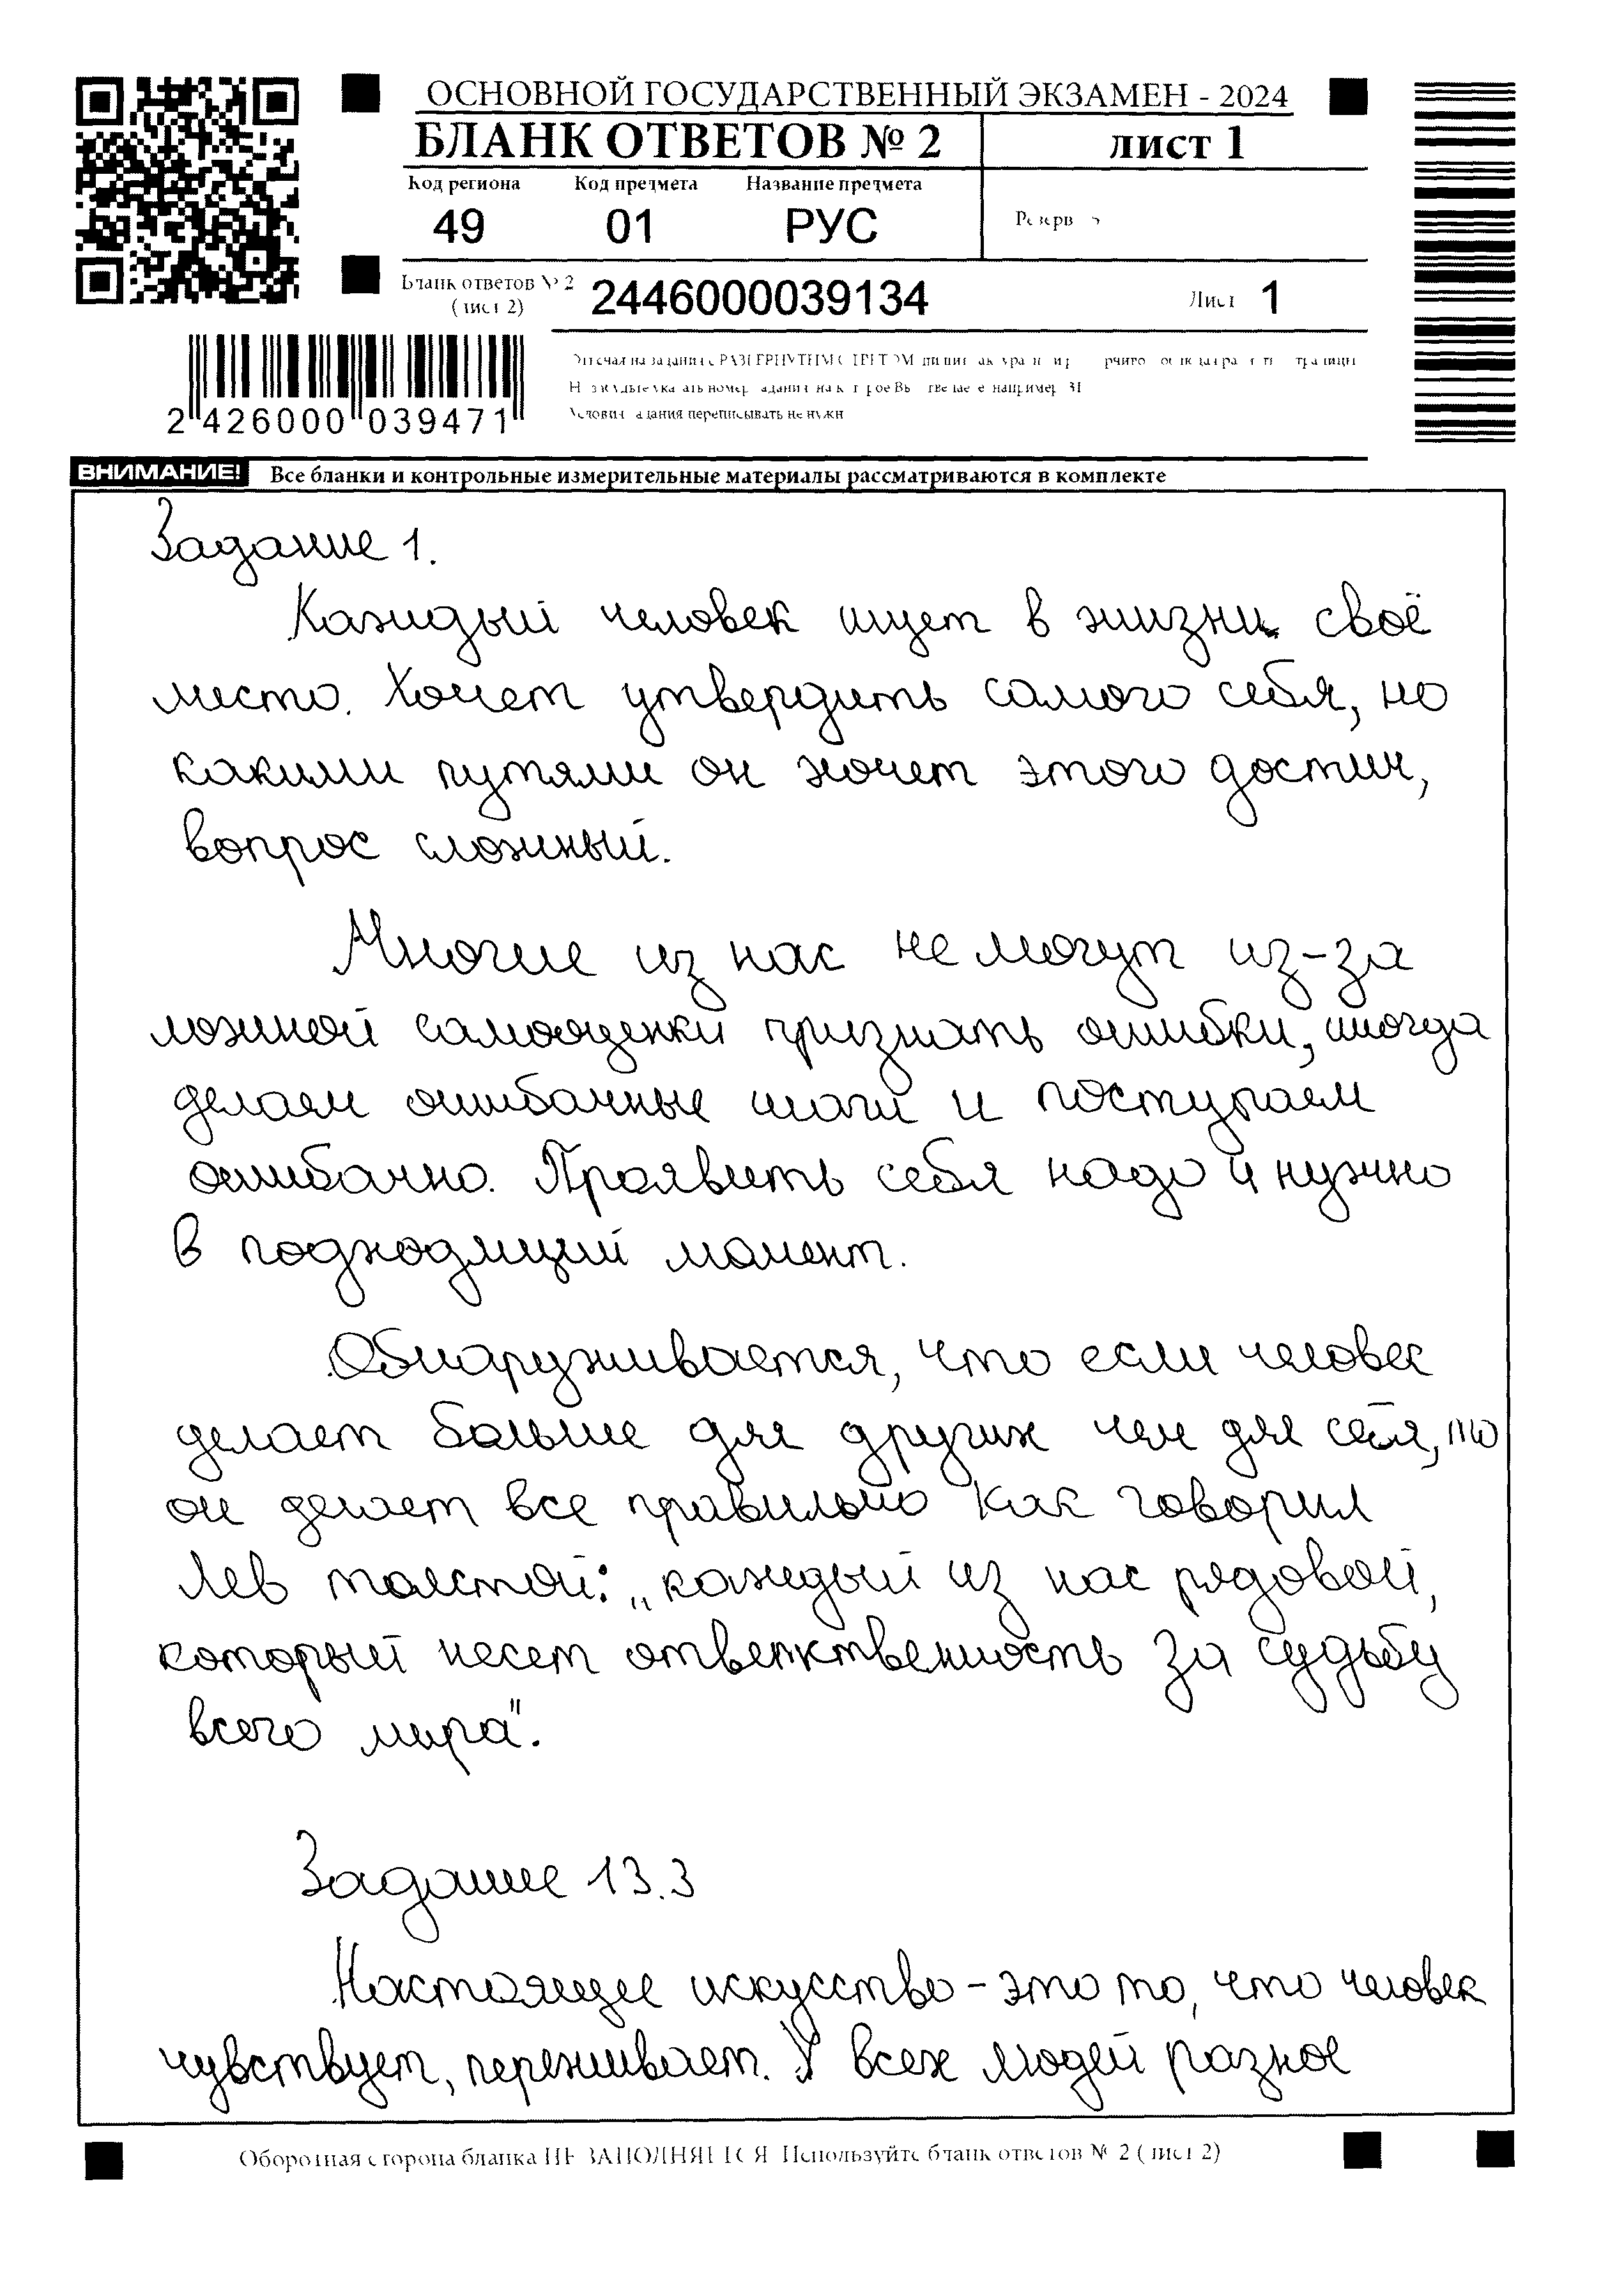 ОСНОВНОЙ ГОСУДАРСТВЕННЫЙ ЭКЗАМЕН - 2024
БЛАНК ОТВЕТОВ № 2
лист 1
Код региона Код предмета Название предмета
49 01 РУС
Резерв
Бланк ответов № 2
(лист 2)
2446000039134
Лист 1
2 426000 039471
Условия задания переписывать не нужно
ВНИМАНИЕ! Все бланки и контрольные измерительные материалы рассматриваются в комплекте
Задание 1.
Каждый человек ищет в жизни своё
место. Хочет утвердить самого себя, но
какими путями он хочет этого достич,
вопрос сложный.
Многие из нас не могут из-за
ложной самооценки признать ошибки, иногда
делаем ошибочные шаги и поступаем
ошибочно. Проявить себя надо и нужно
в подходящий момент.
Обнаруживается, что если человек
делает больше для других чем для себя, то
он делает все правильно Как говорил
Лев толстой: „каждый из нас рядовой,
который несет ответственность за судьбу
всего мира".
Задание 13.3
Настоящее искусство - это то, что человек
чувствует, переживает. У всех людей разное
Оборотная сторона бланка НЕ ЗАПОЛНЯЕТСЯ Используйте бланк ответов № 2 (лист 2)